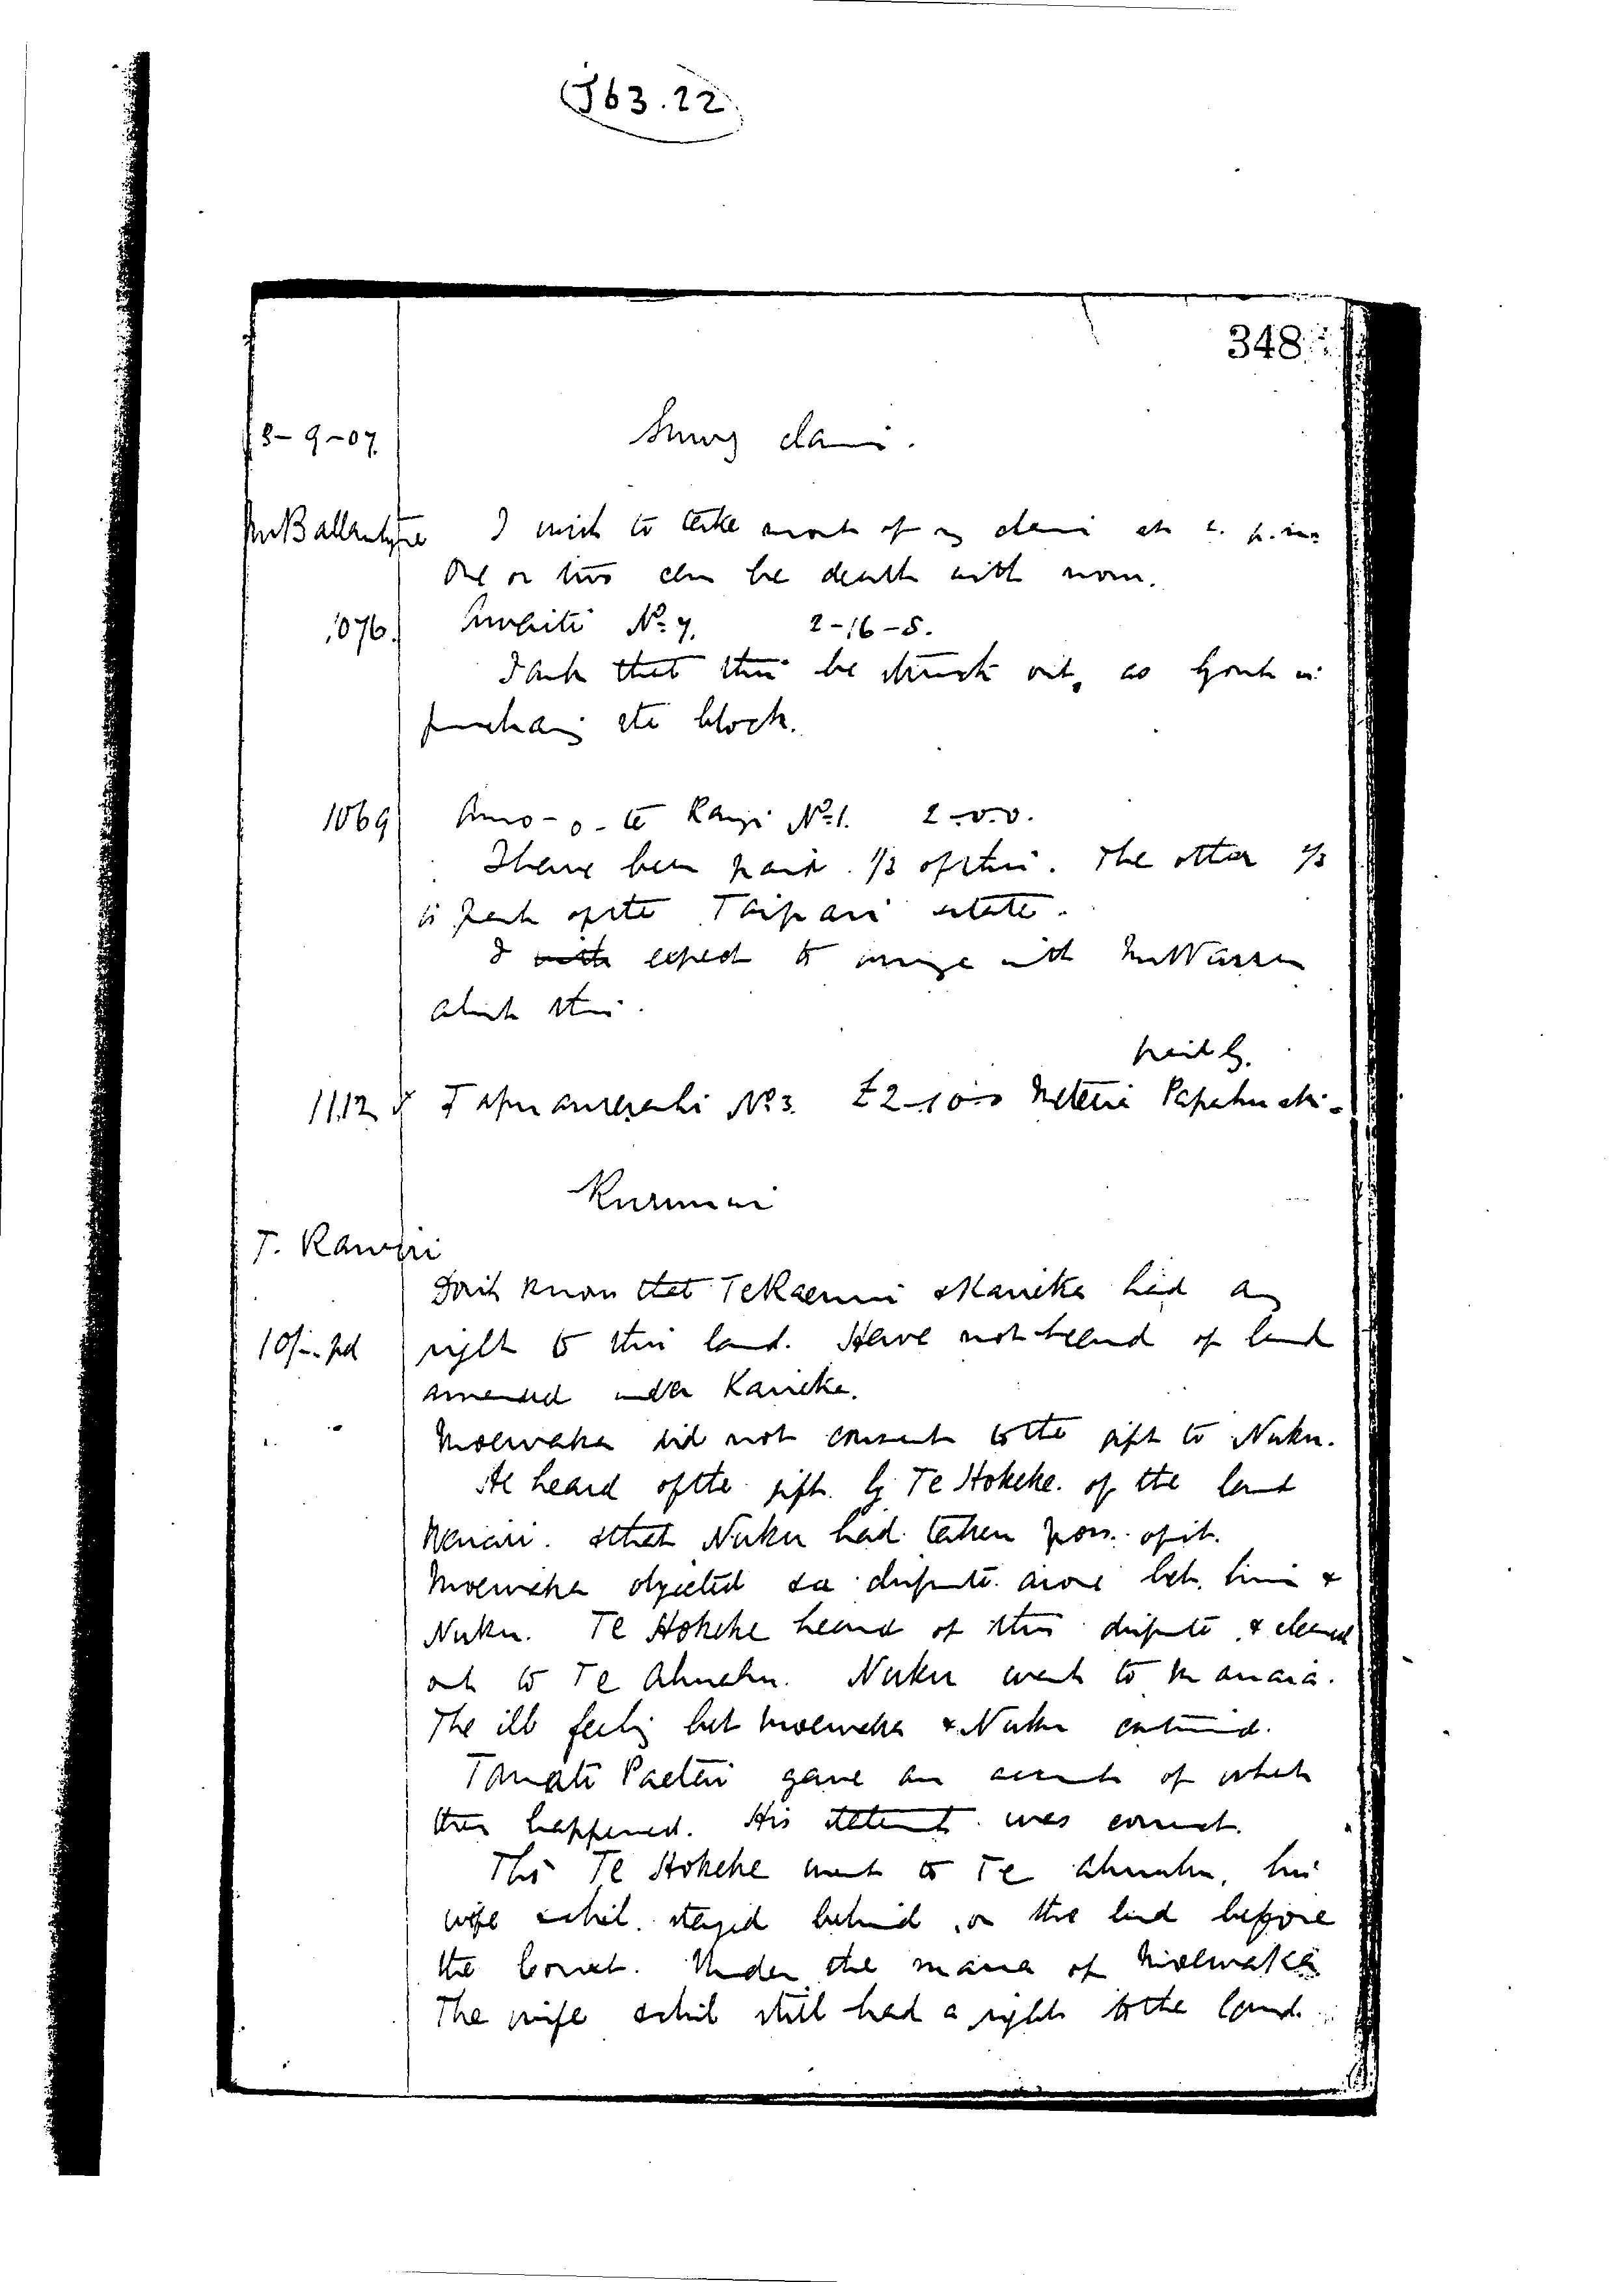 J63.22
348
3-9-07
Survey claim.
Mr Ballantyne I wish to take most of my claims at 2 p.m.
One or two can be dealt with now.
1076. No. 7. 2-16-8.
I ask that this be struck out, as Govt is
purchasing the block.
1069 -o-te Rangi No. 1. 2-0-0.
I have been paid 1/2 of this. The other 1/2
is part of the Taipari estate.
I with expect to arrange with Mr Warren
about this.
paid by
1112 No. 3. £2-10-0
T. Rawiri
Don't know that & Kaneka had any
10/- pd right to this land. Have not heard of land
awarded under Kaneka.
Moewaka did not consent to the gift to Nuku.
He heard of the gift by Te Hokeke of the land
& that Nuku had taken poss. of it.
Moewaka objected & a dispute arose bet. him &
Nuku. Te Hokeke heard of this dispute & cleared
out to Te Ahuahu. Nuku went to Manaia.
The ill feeling bet Moewaka & Nuku continued.
Tamati gave an account of what
then happened. His statement was correct.
Tho Te Hokeke went to Te Ahuahu, his
wife & chil. stayed behind on the land before
the Court. Under the mana of Moewaka
The wife & chil still had a right to the land.